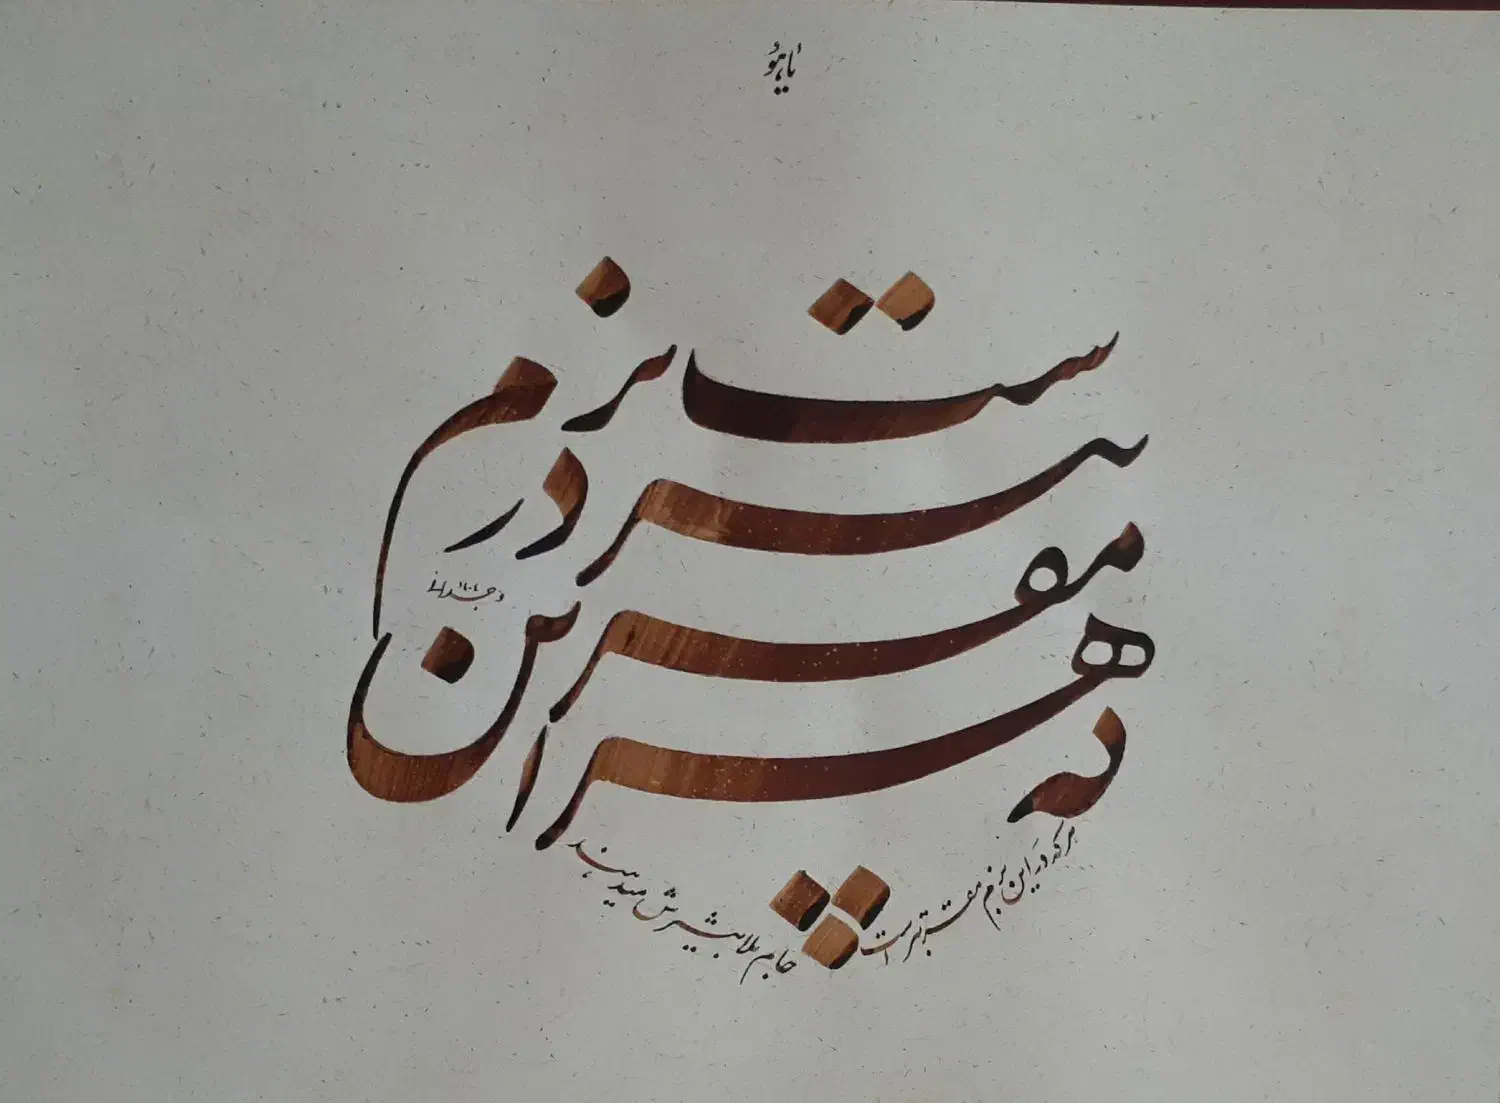 یا هو
هر که در این بزم مقرب تر است
هر که در این بزم مقربتر است
جام بلا بیشترش میدهند